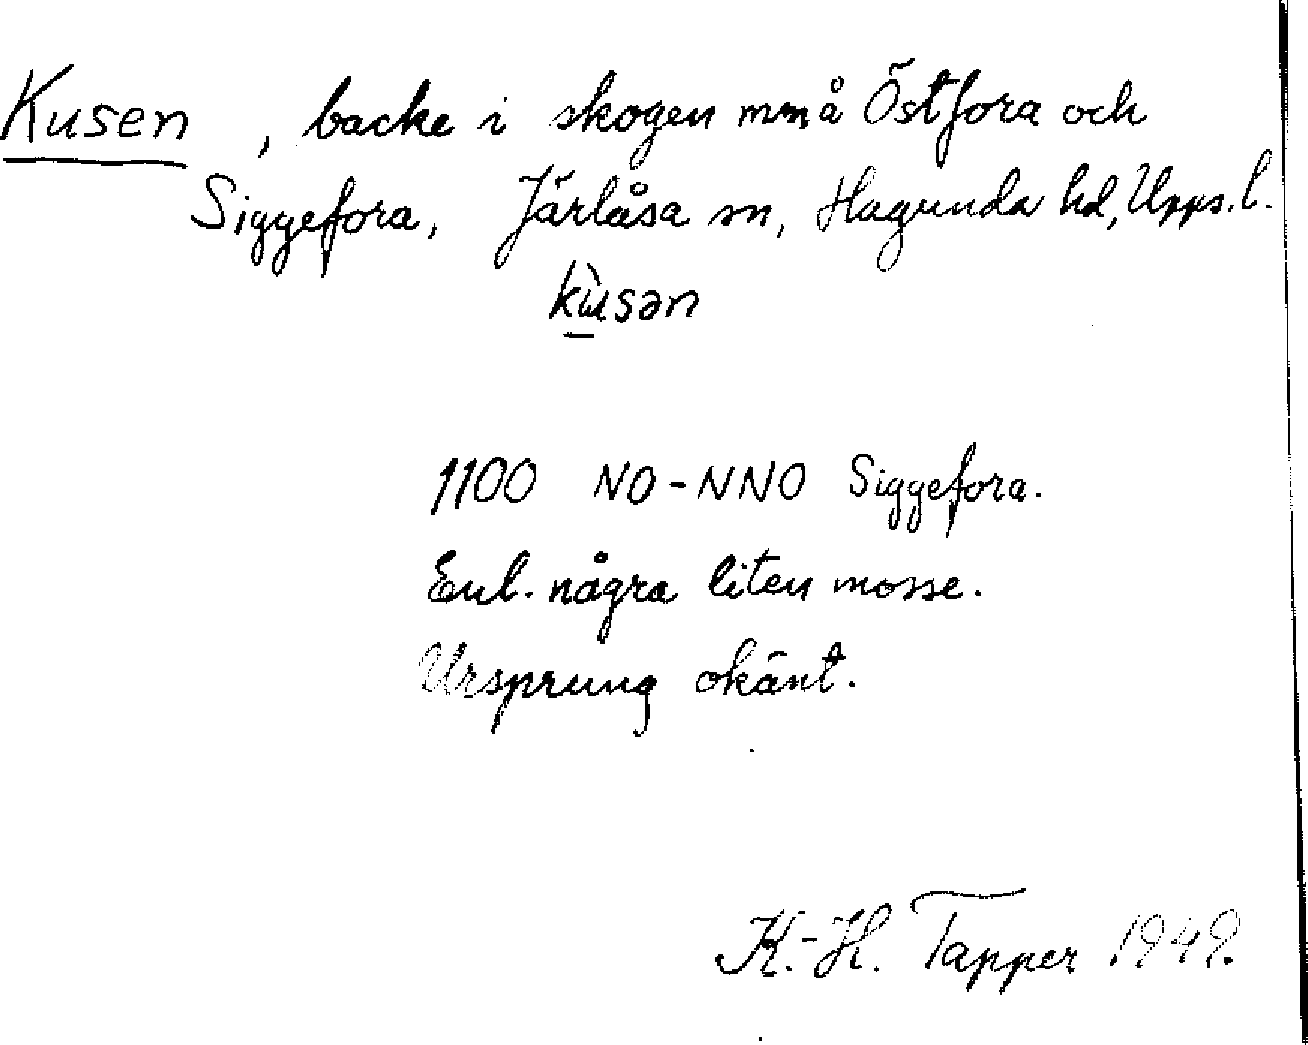 Kusen, backe i skogen mm å Östfora och
Siggefora, Järlåsa sn, Hagunda hd, Upps. l.
kùsən
1100 NO-NNO Siggefora.
Enl. några liten mosse.
Ursprung okänt.
K.-H. Tapper 1949.